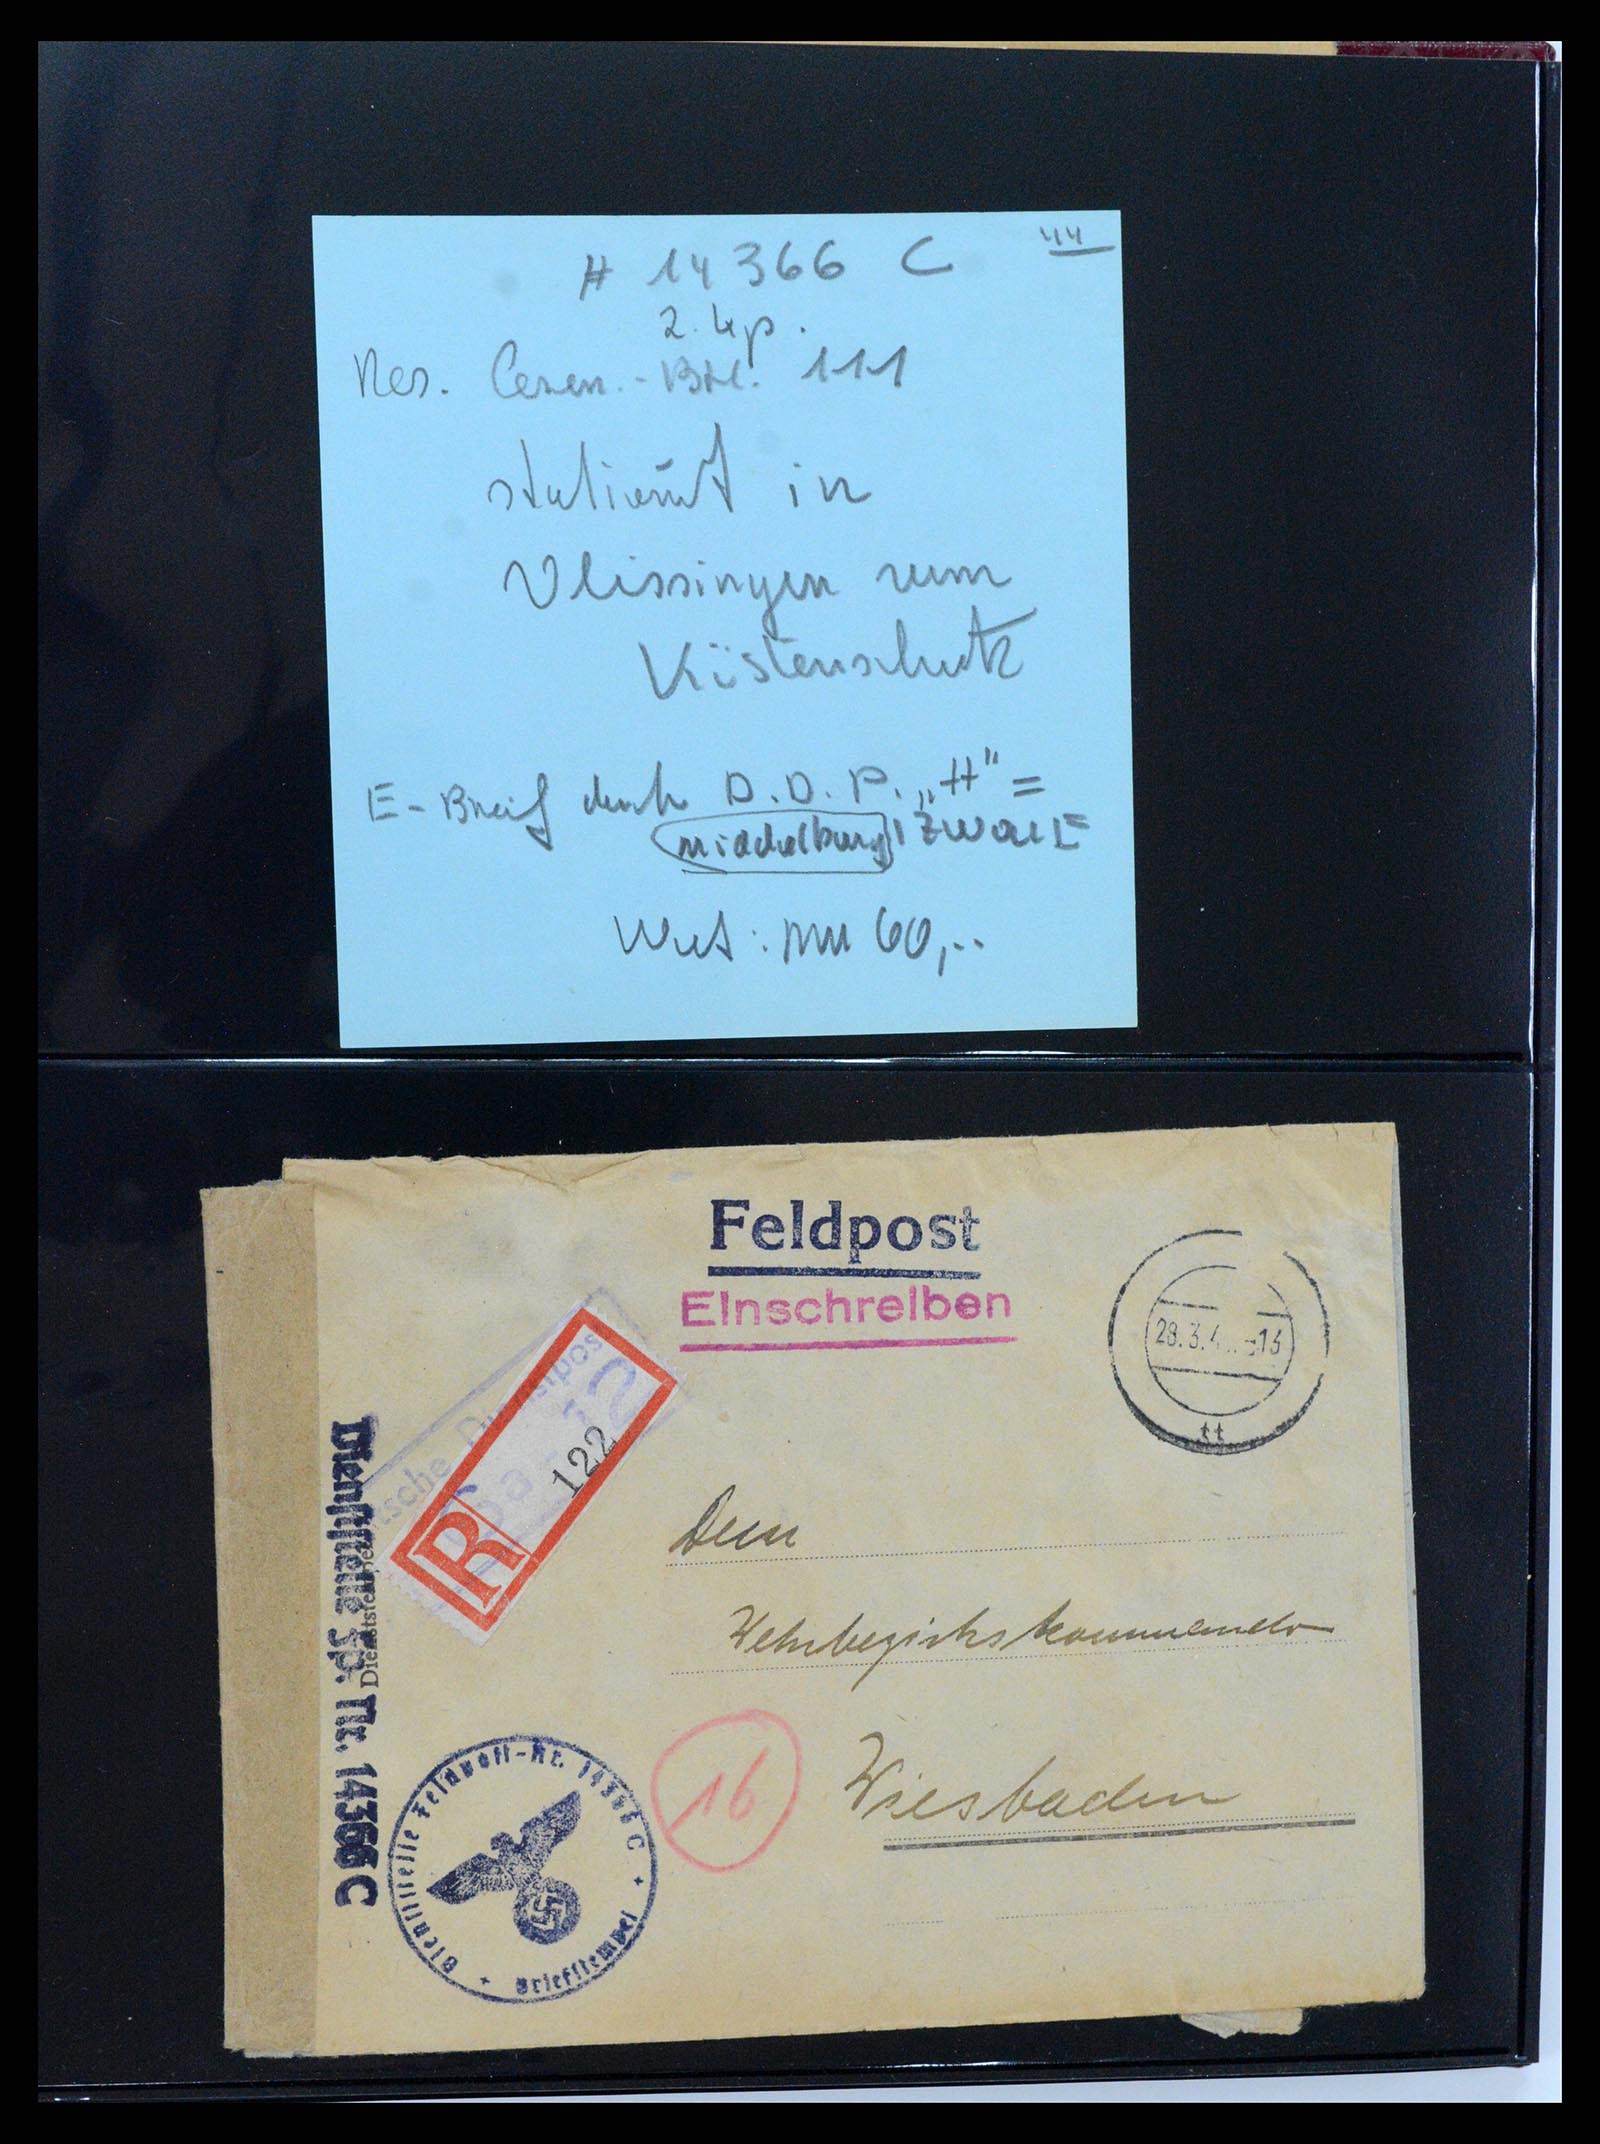 44
# 14366 C
2. Kp.
Res. Gren.-Btl. 111
stationiert in
Vlissingen zum
Küstenschutz
E-Brief durch D.D.P. „H" =
Middelburg
Wert: MM 60,--
Feldpost
Einschreiben
28.3.4 -13
tt
tsche D stpos
R
122
Dienststelle Fp. Nr. 14366 C
Dienststempel
Dem
Wehrbezirkskommando
16
Wiesbaden
Dienststelle Feldpost-Nr. 14366 C
Briefstempel